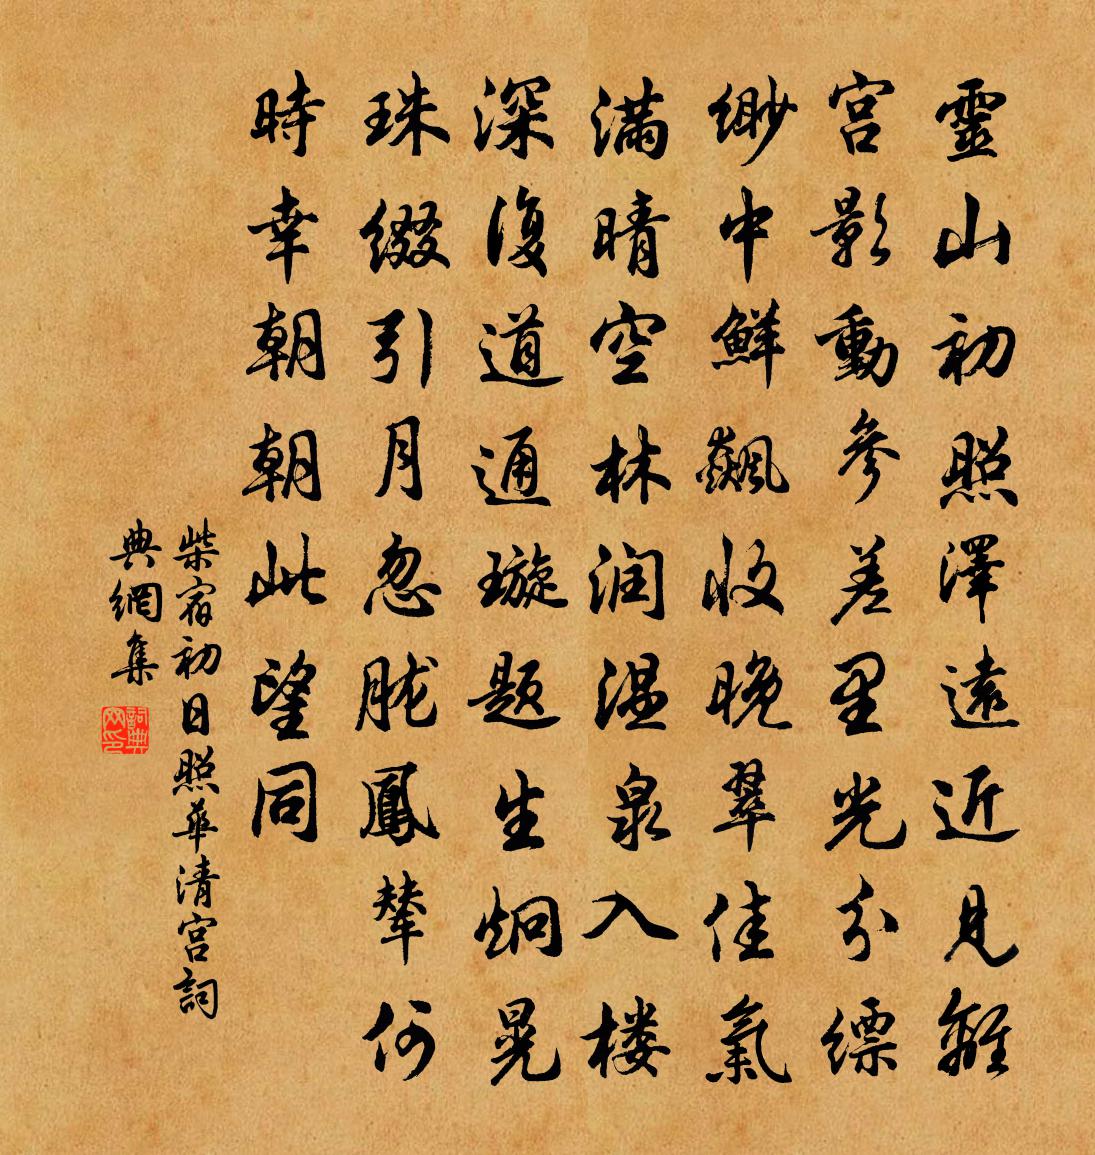 靈山初照澤遠近見離
宮影動參差里光分縹
緲中鮮飆收晚翠佳氣
滿晴空林润温泉入楼
深復道通璇题生炯晃
珠缀引月忽胧鳳輦何
時幸朝朝此望同
柴宿初日照華清宮詞
典網集
詞典
网印